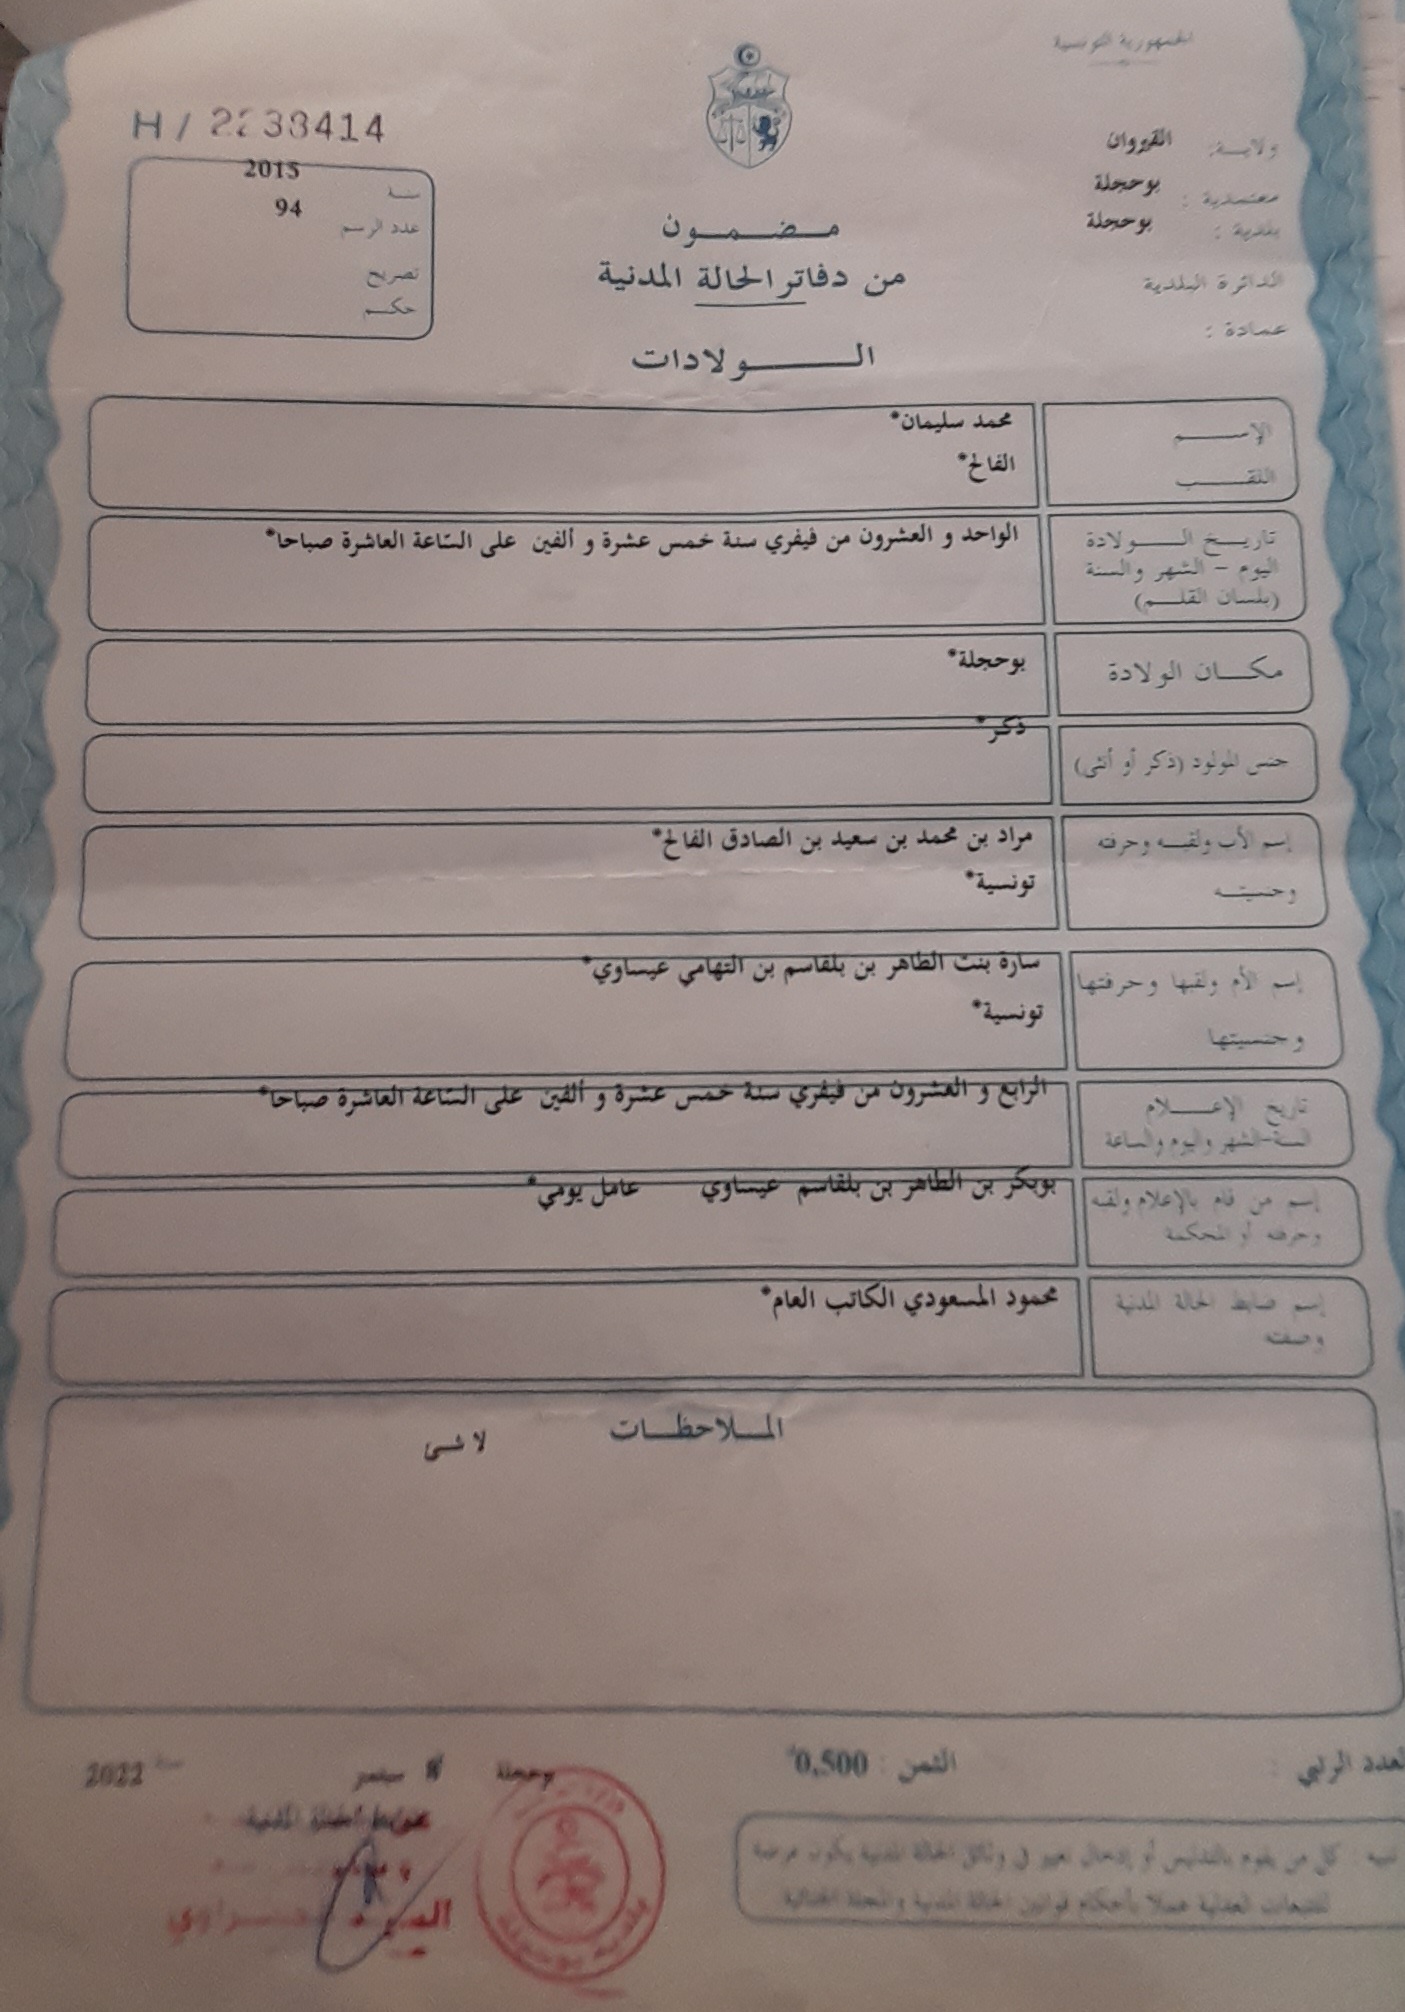 الجمهورية التونسية
H / 2233414
ولاية: القيروان
معتمدية : بوحجلة
بلدية : بوحجلة
الدائرة البلدية
عمادة :
سنة 2015
عدد الرسم 94
تصريح
حكم
مضمون
من دفاتر الحالة المدنية
الولادات
الإسم محمد سليمان*
اللقب الفالح*
تاريخ الولادة الواحد و العشرون من فيفري سنة خمس عشرة و ألفين على السّاعة العاشرة صباحا*
اليوم - الشهر والسنة
(بلسان القلم)
مكان الولادة بوحجلة*
جنس المولود (ذكر أو أنثى) ذكر*
إسم الأب ولقبه وحرفته مراد بن محمد بن سعيد بن الصادق الفالح*
وجنسيته تونسية*
إسم الأم ولقبها وحرفتها سارة بنت الطاهر بن بلقاسم بن التهامي عيساوي*
وجنسيتها تونسية*
تاريخ الإعلام الرابع و العشرون من فيفري سنة خمس عشرة و ألفين على السّاعة العاشرة صباحا*
السنة-الشهر واليوم والساعة
إسم من قام بالإعلام ولقبه بوبكر بن الطاهر بن بلقاسم عيساوي عامل يومي*
وحرفته أو المحكمة
إسم ضابط الحالة المدنية محمود المسعودي الكاتب العام*
وصفته
الملاحظات
لا شئ
العدد الرتبي :
الثمن : 0,500
بوحجلة سبتمبر سنة 2022
ضابط الحالة المدنية
تنبيه : كل من يقوم بالتدليس أو إدخال تغيير في وثائق الحالة المدنية يكون عرضة
للتتبعات العدلية عملا بأحكام قوانين الحالة المدنية والمجلة الجنائية
بلدية بوحجلة